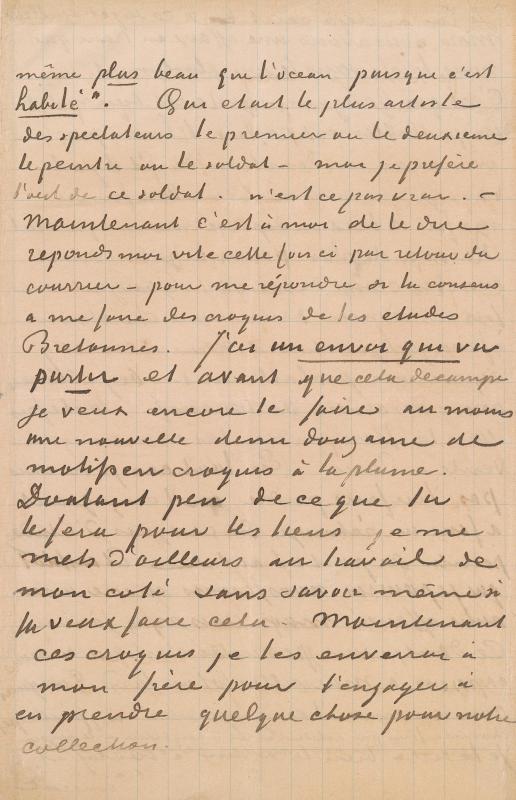 même plus beau que l'ocean puisque c'est
habité". Qui etait le plus artiste
des spectateurs le premier ou le deuxieme
le peintre ou le soldat – moi je préfère
l'oeil de ce soldat. n'est ce pas vrai. –
Maintenant c'est à moi de te dire
reponds moi vite cette fois ci par retour du
courrier – pour me répondre si tu consens
a me faire des croquis de tes etudes
Bretonnes. J'ai un envoi qui va
partir et avant que cela decampe
je veux encore te faire au moins
une nouvelle demi douzaine de
motifs en croquis à la plume.
Doutant peu de ce que tu
le fera pour les tiens je me
mets d'ailleurs au travail de
mon coté sans savoir même si
tu veux faire cela. Maintenant
ces croquis je les enverrai à
mon frère pour l'engager à
en prendre quelque chose pour notre
collection.